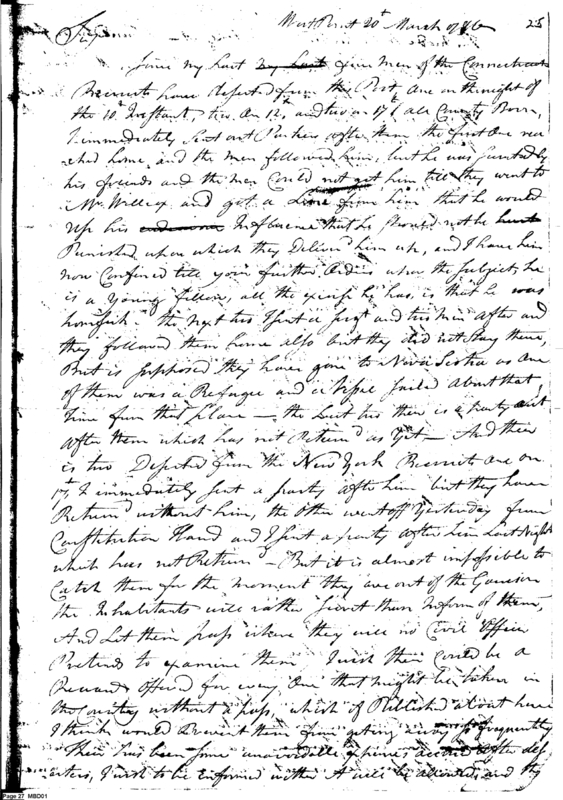 West Point 20th March 1786 25
Sir
Since my Last my Last five men of the Connecticut
Recruits have Deserted from this Post, One on the night of
the 10th Instant, two on 12th, and two on 17th all County Born,
I immediately Sent out Parties after them the first One rea
ched home, and the men followed him, but he was by
his friends and the men Could not get him till they went to
Mr. and got a Line from him that he would
Use his Influence that he Should not be
Punished upon which they Deliverd him up, and I have him
now Confined till your further Orders upon the Subject, he
is a Young fellow, all the excuse he has, is that he was
homesick. the next two I Sent a Serjt and two men after and
they followed them home also but they did not Stay there,
But is Supposed they have gone to Nova Scotia as One
of them was a Refugee and a Vessel Sailed About that
time from that place — the Last two there is a party out
after them which has not Returnd as Yet — And there
is two Deserted from the New York Recruits One on
17th I immediately Sent a party after him but they have
Returnd without him, the Other went off Yesterday from
Constitution Island and I Sent a party after him Last Night
which has not Returnd — But it is almost impossible to
Catch them for the moment they are out of the Garrison
the Inhabitants will rather Secret than Inform of them,
And Let them pass where they will no Civil Officer
Pretends to examine them I wish there Could be a
Reward Offered for every One that might be taken in
the Country without a pass, which if Published about here
I think would Prevent them from geting away so frequently
There has been Some unavoidable expences after des
erters, I wish to be Informed wither it will be allowed, and they
Page 27 MBD01